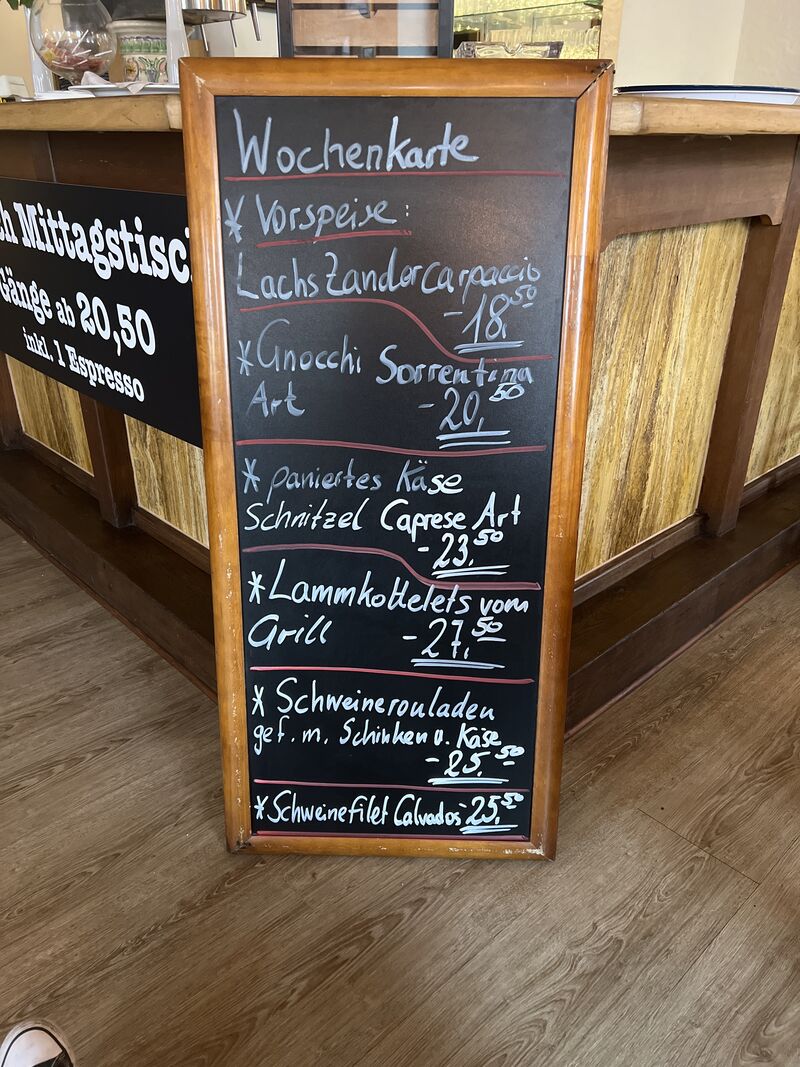 Wochenkarte
* Vorspeise:
Lachs Zandercarpaccio
- 18,50
* Gnocchi Sorrentina
Art - 20,50
* paniertes Käse
Schnitzel Caprese Art
- 23,50
* Lammkottelets vom
Grill - 27,50
* Schweinerouladen
gef. m. Schinken u. Käse
- 25,50
* Schweinefilet Calvados 25,50
h Mittagstisc
Gänge ab 20,50
inkl. 1 Espresso